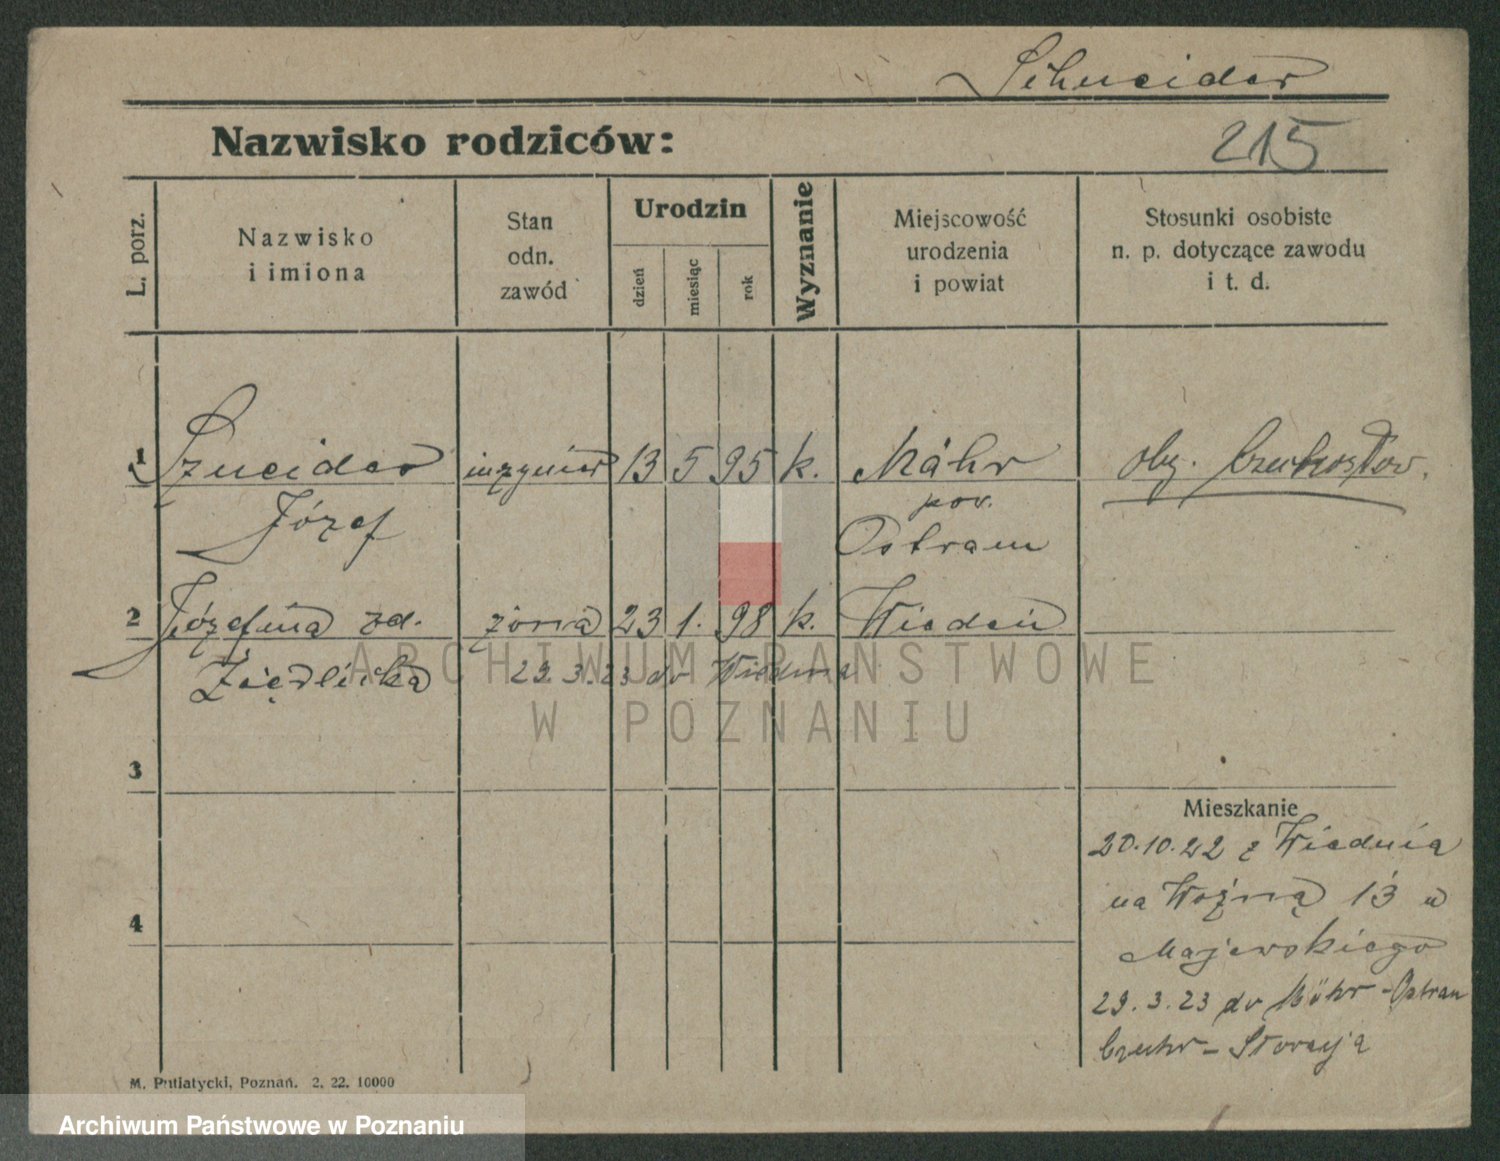 Schneider
Nazwisko rodziców:
215
L. porz.
Nazwisko
i imiona
Stan
odn.
zawód
Urodzin
dzień
miesiąc
rok
Wyznanie
Miejscowość
urodzenia
i powiat
Stosunki osobiste
n. p. dotyczące zawodu
i t. d.
1 Szneider inzynier 13 5 95 k. Mähr oby. Czechosłow.
Józef pow. Ostrau
2 Józefina zd. żona 23 1. 98 k. Wiedeń
29.3.23 do Wiednia
3
4
Mieszkanie
20.10.22 z Wiednia
na Woźną 13 u
Majewskiego
29.3.23 do Mähr-Ostrau
M. Putiatycki, Poznań. 2. 22. 10000
ARCHIWUM PAŃSTWOWE
W POZNANIU
Archiwum Państwowe w Poznaniu